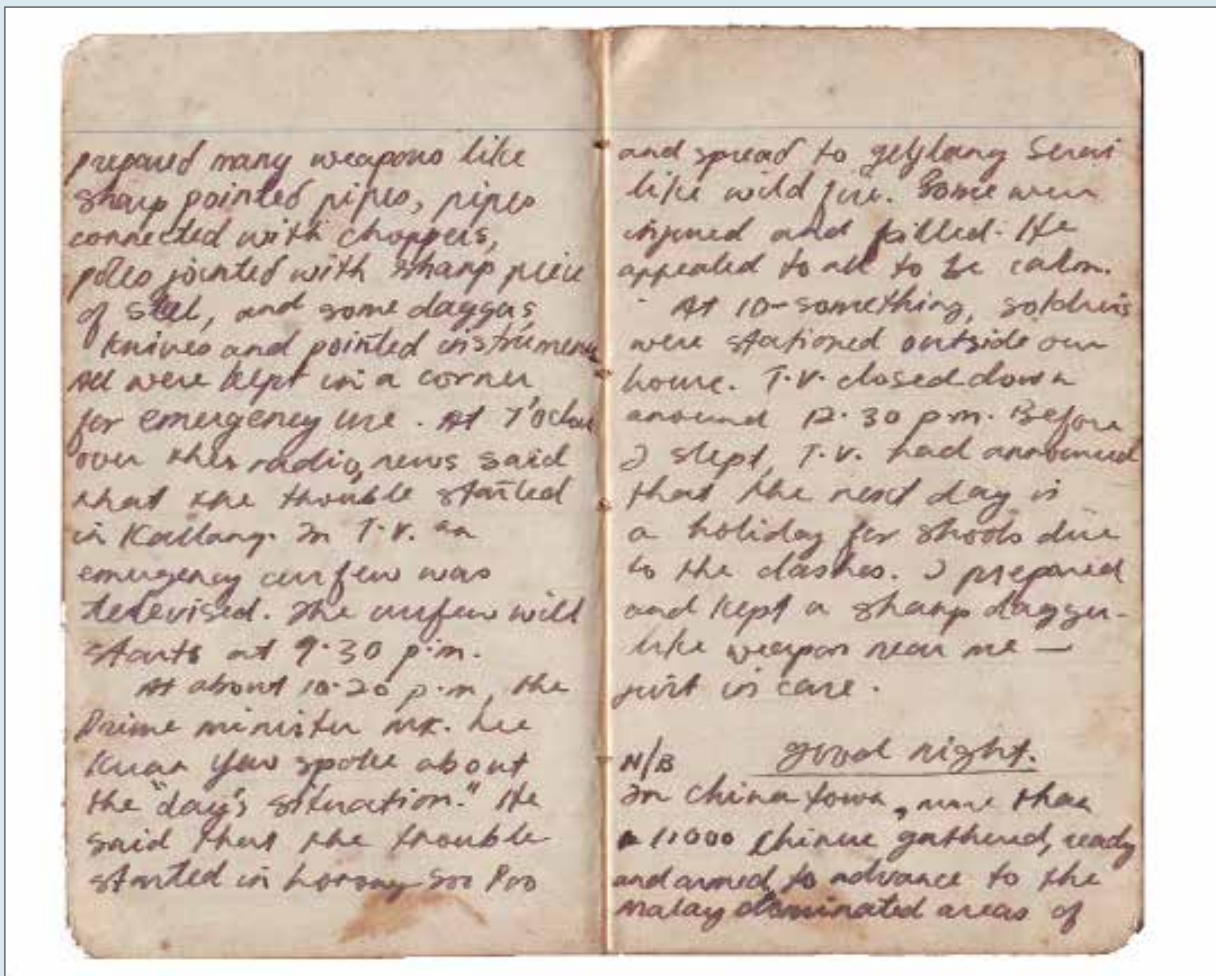 prepared many weapons like
sharp pointed pipes, pipes
connected with choppers,
poles jointed with sharp piece
of steel, and some daggas
knives and pointed instruments
All were kept in a corner
for emergency use. At 7 o'clock
over the radio, news said
that the thouble started
in Kallang. In T.V. an
emergency curfew was
televised. The curfew will
starts at 9.30 p.m.
At about 10.20 p.m, the
Prime minister Mr. Lee
Kuan Yew spoke about
the "day's situation." He
said that the trouble
started in Lorong Soo Poo
and spread to Seuai
like wild fire. Some were
injured and killed. He
appealed to all to be calm.
At 10-something, soldiers
were stationed outside our
house. T.V. closed down
around 12.30 p.m. Before
I slept, T.V. had announced
that the next day is
a holiday for shools due
to the clashes. I prepared
and kept a sharp dagger-
like weapon near me —
just in case.
good night.
N/B
In china town, more than
11000 chinese gathered, ready
and armed to advance to the
Malay dominated areas of